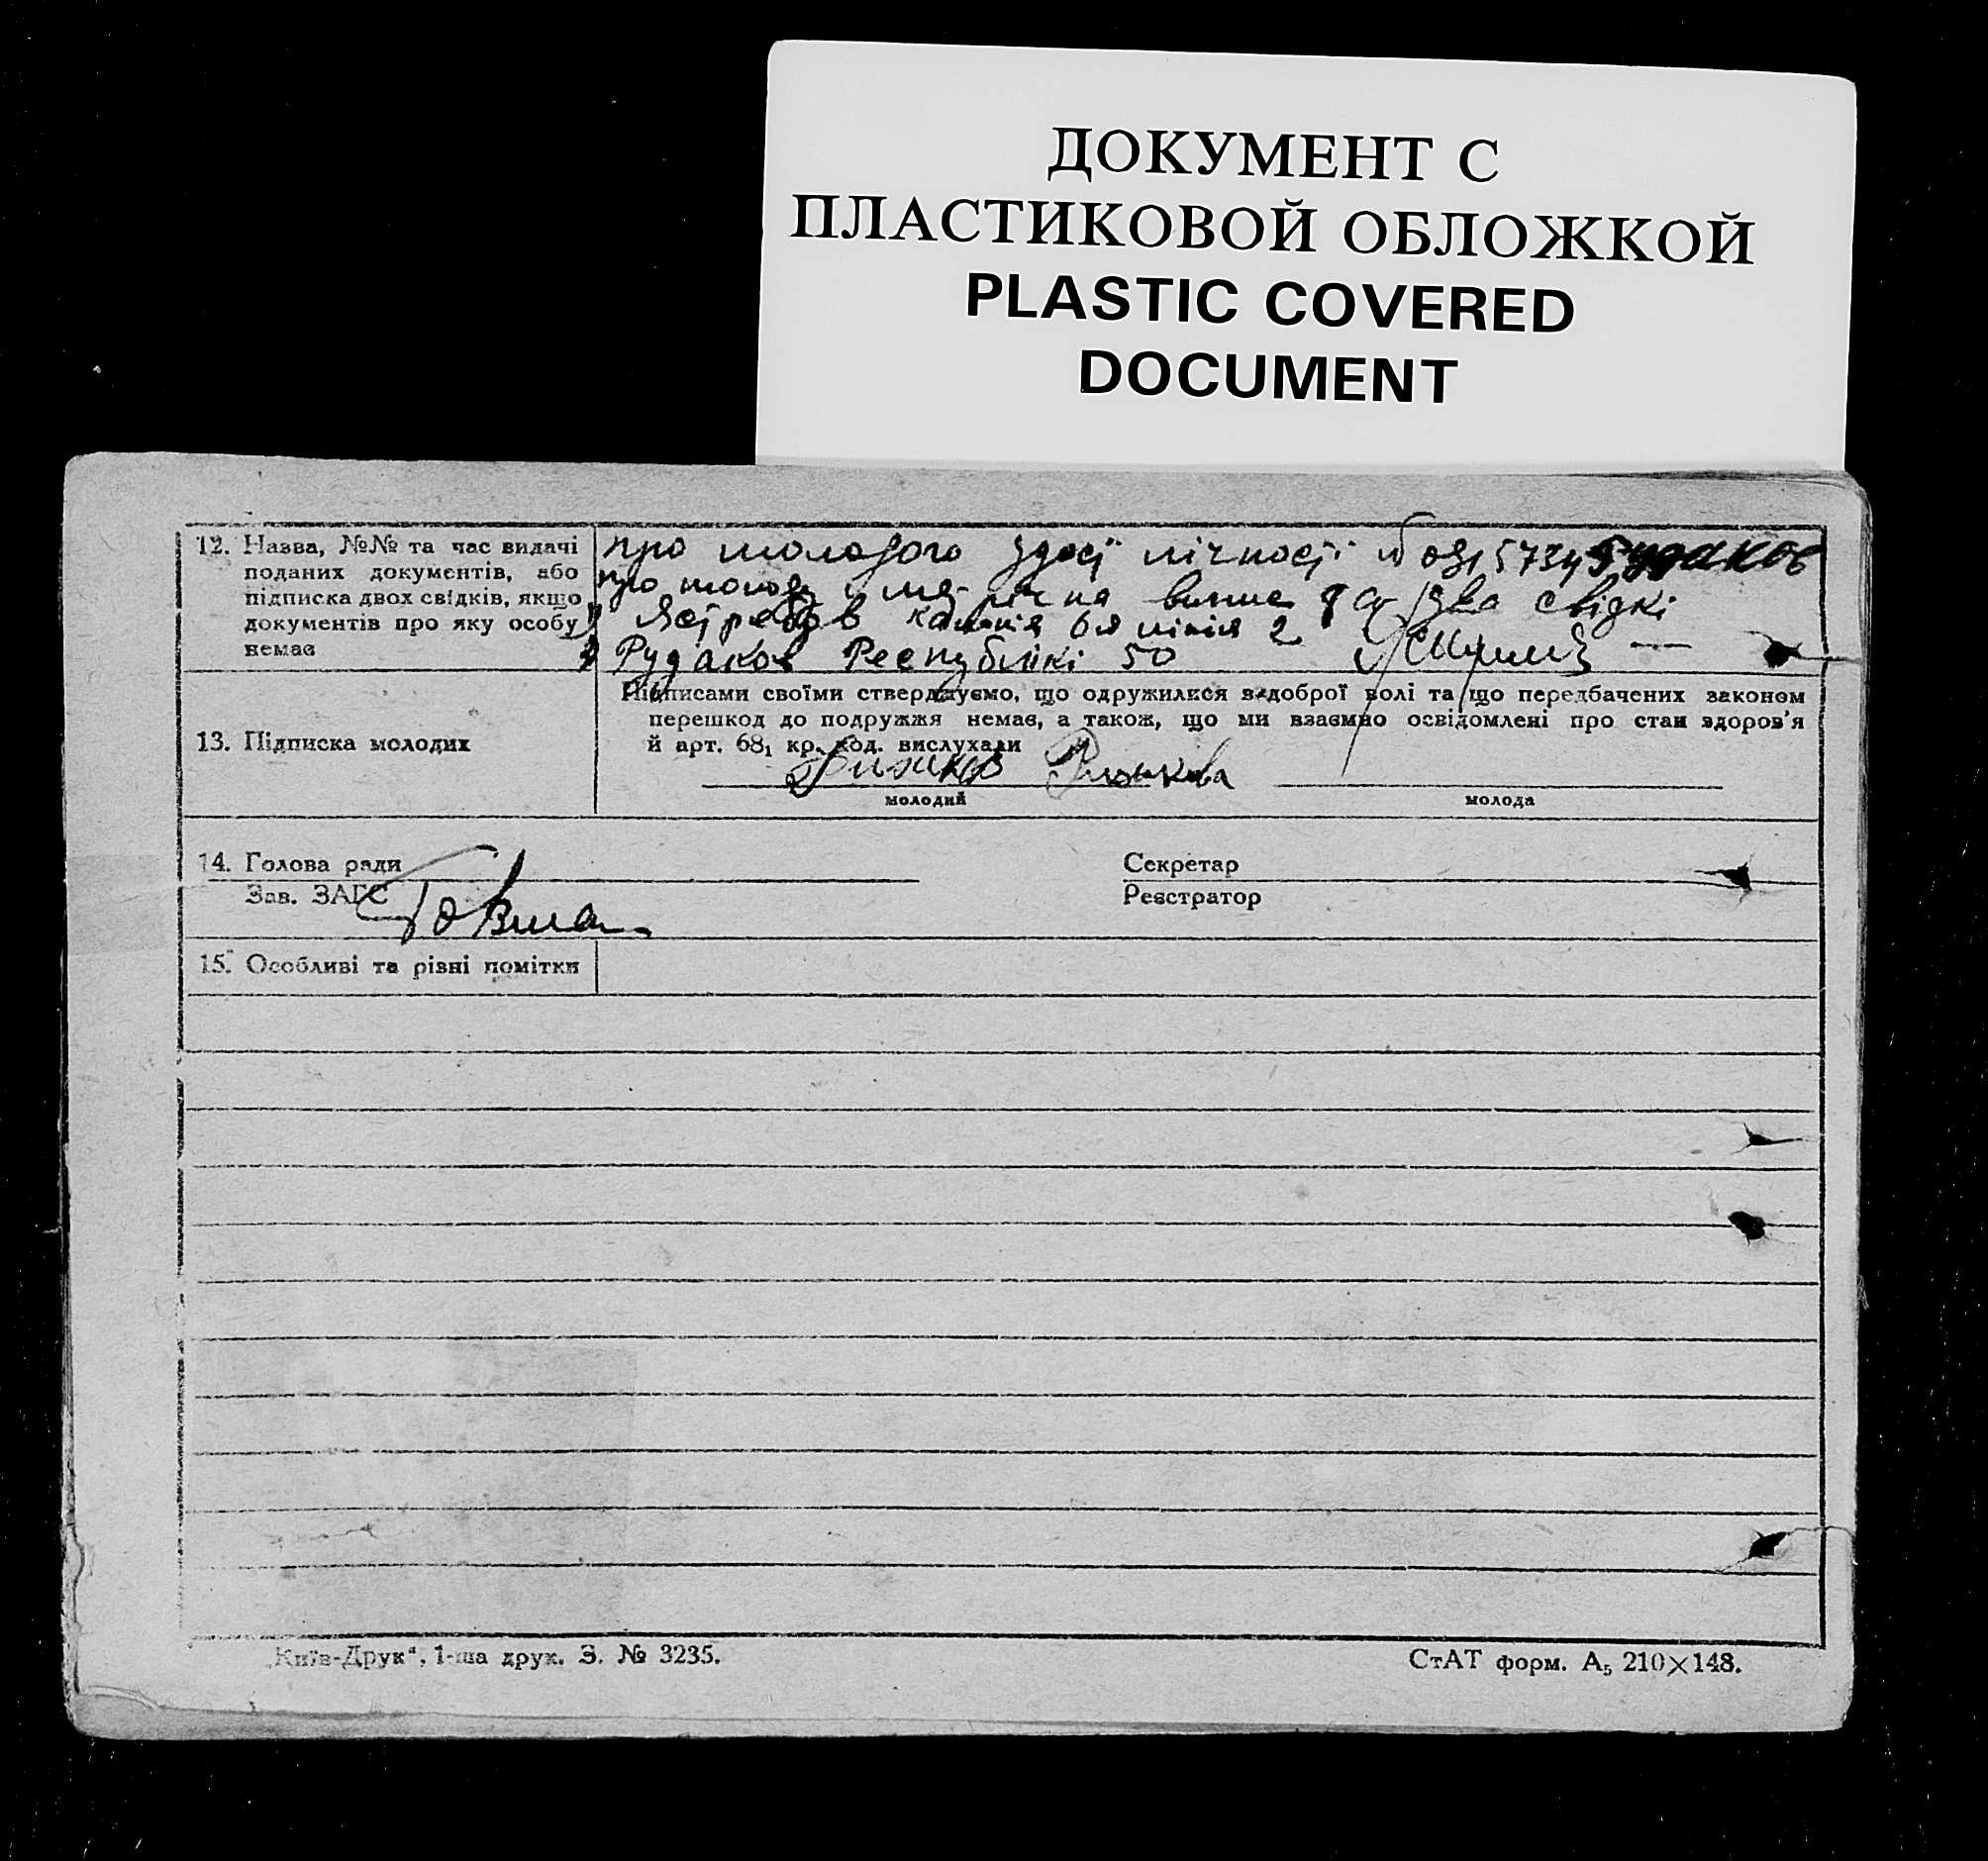 ДОКУМЕНТ С
ПЛАСТИКОВОЙ ОБЛОЖКОЙ
PLASTIC COVERED
DOCUMENT
12. Назва, №№ та час видачі
поданих документів, або
підписка двох свідків, якщо
документів про яку особу
немає
про молодого лічності 5734 Рудаков
про молоду два свідкі
6я лінія 2
Рудаков Республікі 50
13. Підписка молодих
Підписами своїми стверджуємо, що одружилися з доброї волі та що передбачених законом
перешкод до подружжя немає, а також, що ми взаємно освідомлені про стан здоров'я
й арт. 68₁ кр. код. вислухали
молодий
молода
14. Голова ради
Секретар
Зав. ЗАГС
Реєстратор
15. Особливі та різні помітки
„Київ-Друк“, 1-ша друк. З. № 3235.
СтАТ форм. А₅ 210×148.